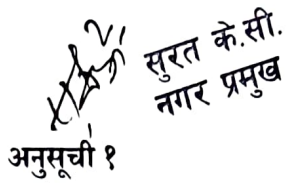 सुरत के.सी.
नगर प्रमुख
अनुसूची १